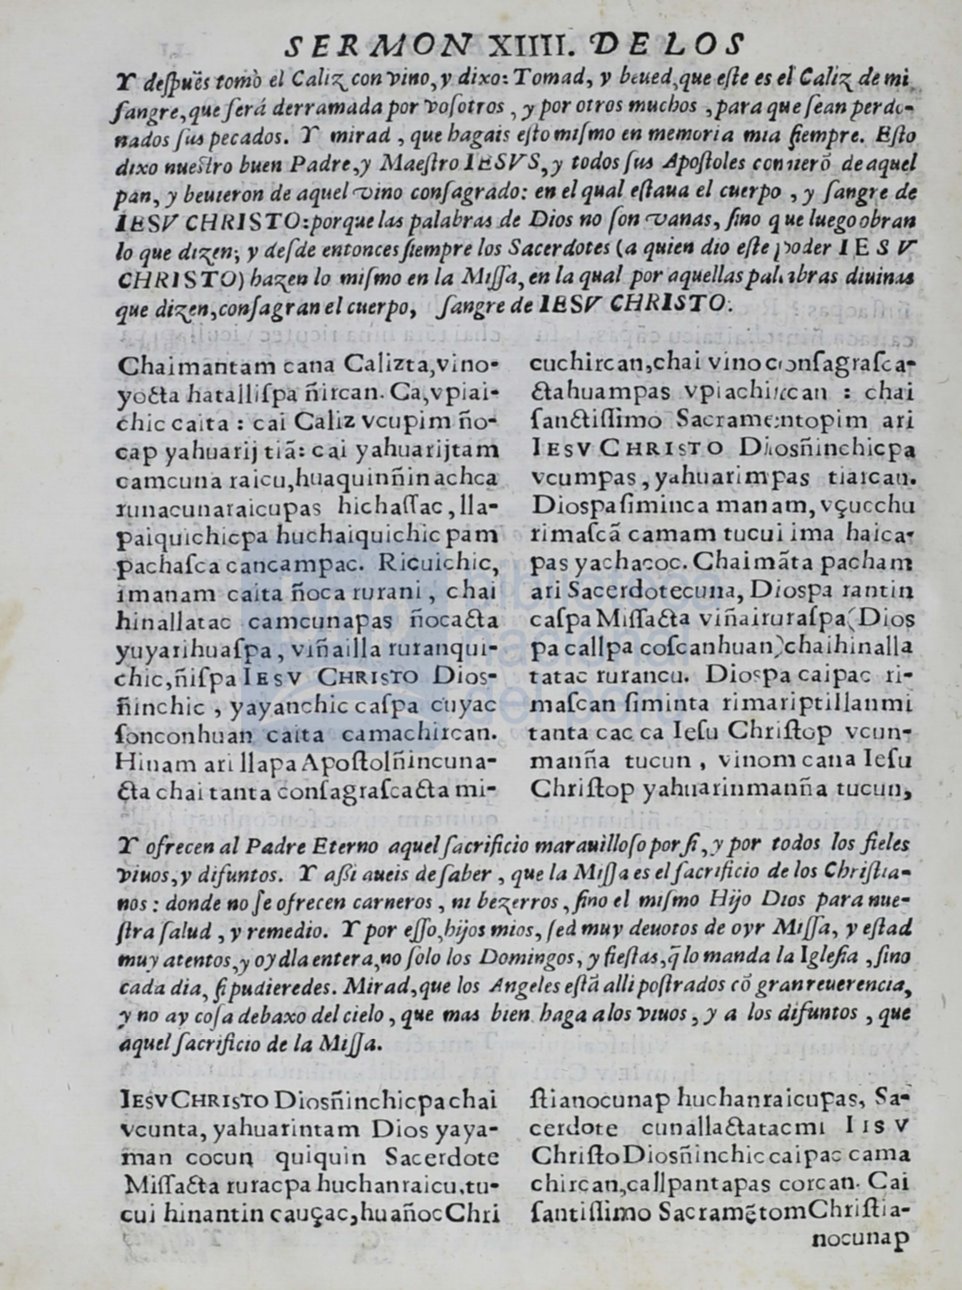 SERMON XIIII. DE LOS
Y deſpues tomò el Caliz con vino, y dixo: Tomad, y beued, que eſte es el Caliz de mi
ſangre, que ſerá derramada por voſotros, y por otros muchos, para que ſean perdo-
nados ſus pecados. Y mirad, que hagais eſto miſmo en memoria mia ſiempre. Eſto
dixo nueſtro buen Padre, y Maeſtro IESVS, y todos ſus Apoſtoles comierõ de aquel
pan, y beuieron de aquel vino conſagrado: en el qual eſtaua el cuerpo, y ſangre de
IESV CHRISTO: porque las palabras de Dios no ſon vanas, ſino que luego obran
lo que dizen; y deſde entonces ſiempre los Sacerdotes (a quien dio eſte poder IESV
CHRISTO) hazen lo miſmo en la Miſſa, en la qual por aquellas palabras diuinas
que dizen, conſagran el cuerpo, ſangre de IESV CHRISTO.
Chaimantam cana Calizta, vino-
yocta hatalliſpa ñircan. Ca, vpiai-
chic caita: cai Caliz vcupim ño-
cap yahuarij tiã: cai yahuarijtam
camcuna raicu, huaquinñin achca
runacunaraicupas hichaſſac, lla-
paiquichicpa huchaiquichic pam
pachaſca cancampac. Ricuichic,
imanam caita ñoca rurani, chai
hinallatac camcunapas ñocacta
yuyarihuaſpa, viñailla ruranqui-
chic, ñiſpa IESV CHRISTO Dios-
ñinchic, yayanchic caſpa cuyac
ſonconhuan caita camachircan.
Hinam ari llapa Apoſtolñincuna-
cta chai tanta conſagraſcacta mi-
cuchircan, chai vino conſagraſca-
ctahuampas vpiachircan: chai
ſanctiſſimo Sacramentopim ari
IESV CHRISTO Diosñinchicpa
vcumpas, yahuarimpas tiarcan.
Diospa ſiminca manam, vçucchu
rimaſcã camam tucui ima haica-
pas yachacoc. Chaimãta pacham
ari Sacerdotecuna, Diospa rantin
caſpa Miſſacta viñai ruraſpa (Dios
pa callpa coſcanhuan) chaihinalla
tatac rurancu. Diospa caipac ri-
maſcan ſiminta rimariptillanmi
tanta cac ca Ieſu Chriſtop vcun-
manña tucun, vinom cana Ieſu
Chriſtop yahuarinmanña tucun,
Y ofrecen al Padre Eterno aquel ſacrificio marauilloſo por ſi, y por todos los fieles
viuos, y difuntos. Y aſsi aueis de ſaber, que la Miſſa es el ſacrificio de los Chriſtia-
nos: donde no ſe ofrecen carneros, ni bezerros, ſino el miſmo Hijo Dios para nue-
ſtra ſalud, y remedio. Y por eſſo, hijos mios, ſed muy deuotos de oyr Miſſa, y eſtad
muy atentos, y oydla entera, no ſolo los Domingos, y fieſtas, q̃ lo manda la Igleſia, ſino
cada dia, ſi pudieredes. Mirad, que los Angeles eſtã alli poſtrados cõ gran reuerencia,
y no ay coſa debaxo del cielo, que mas bien haga a los viuos, y a los difuntos, que
aquel ſacrificio de la Miſſa.
IESV CHRISTO Diosñinchicpa chai
vcunta, yahuarintam Dios yaya-
man cocun quiquin Sacerdote
Miſſacta ruracpa huchanraicu, tu-
cui hinantin cauçac, huañoc Chri
ſtianocunap huchanraicupas, Sa-
cerdote cunallactatacmi IISV
Chriſto Diosñinchic caipac cama
chircan, callpantapas corcan. Cai
ſantiſſimo Sacramẽtom Chriſtia-
nocunap
biblioteca
nacional
del perú